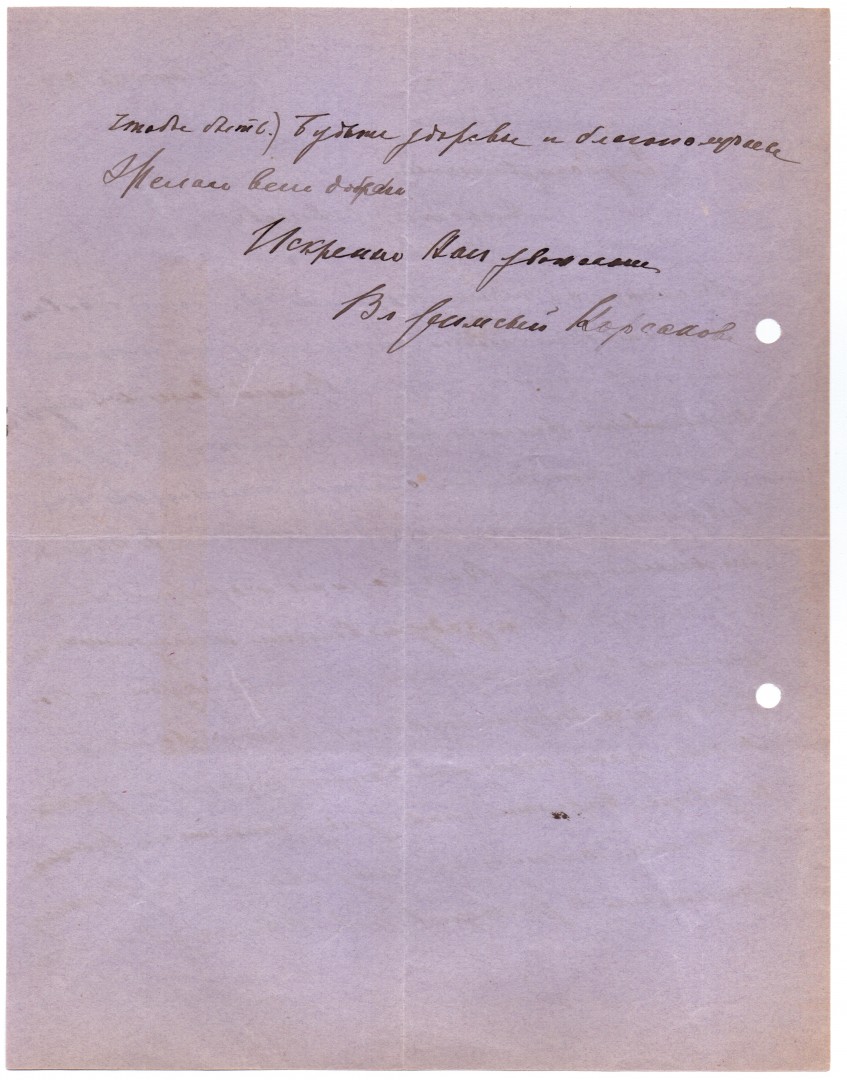 чтобы быть.) Будьте здоровы и благополучны
Желаю всего доброго
Искренно Вам
Вл Римский Корсаков